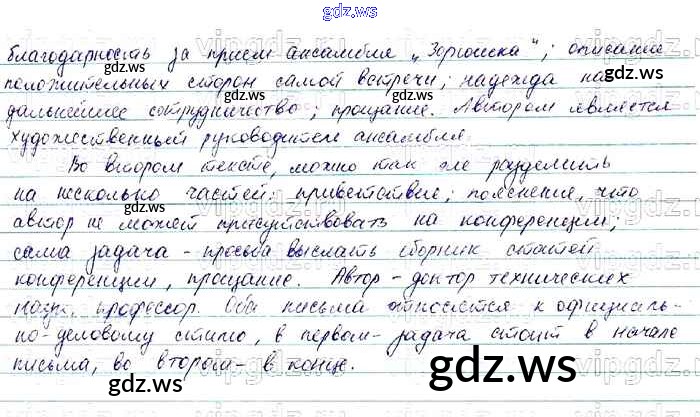 gdz.ws
благодарность за прием ансамбля „Зорюшка“; описание
положительных сторон самой встречи; надежда на
дальнейшее сотрудничество; прощание. Автором является
художественный руководитель ансамбля.
Во втором тексте, можно так же разделить
на несколько частей: приветствие; пояснение, что
автор не может присутствовать на конференции;
сама задача - просьба выслать сборник статей
конференции, прощание. Автор - доктор технических
наук, профессор. Оба письма относятся к официаль-
но-деловому стилю, в первом - задача стоит в начале
письма, во втором - в конце.
gdz.ws